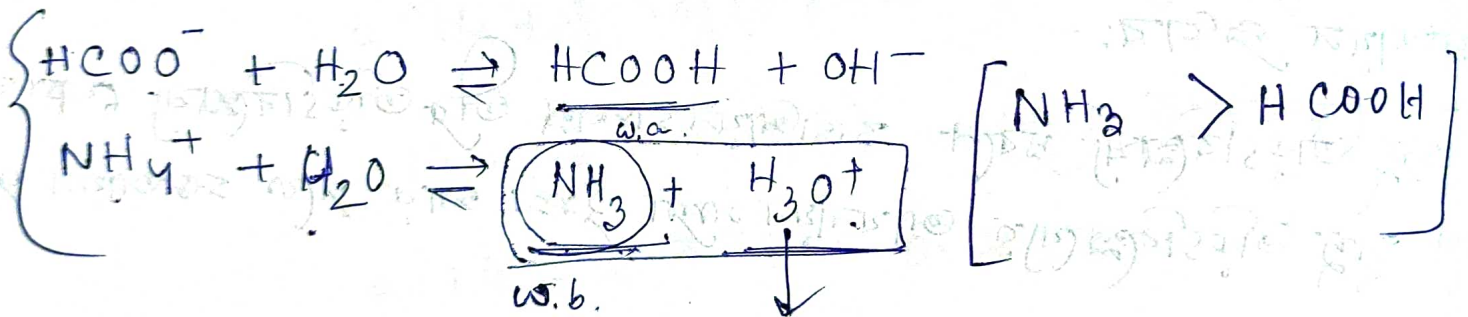 HCOO⁻ + H₂O ⇌ HCOOH + OH⁻
w.a.
NH₄⁺ + H₂O ⇌ NH₃ + H₃O⁺
w.b.
[NH₃ > HCOOH]